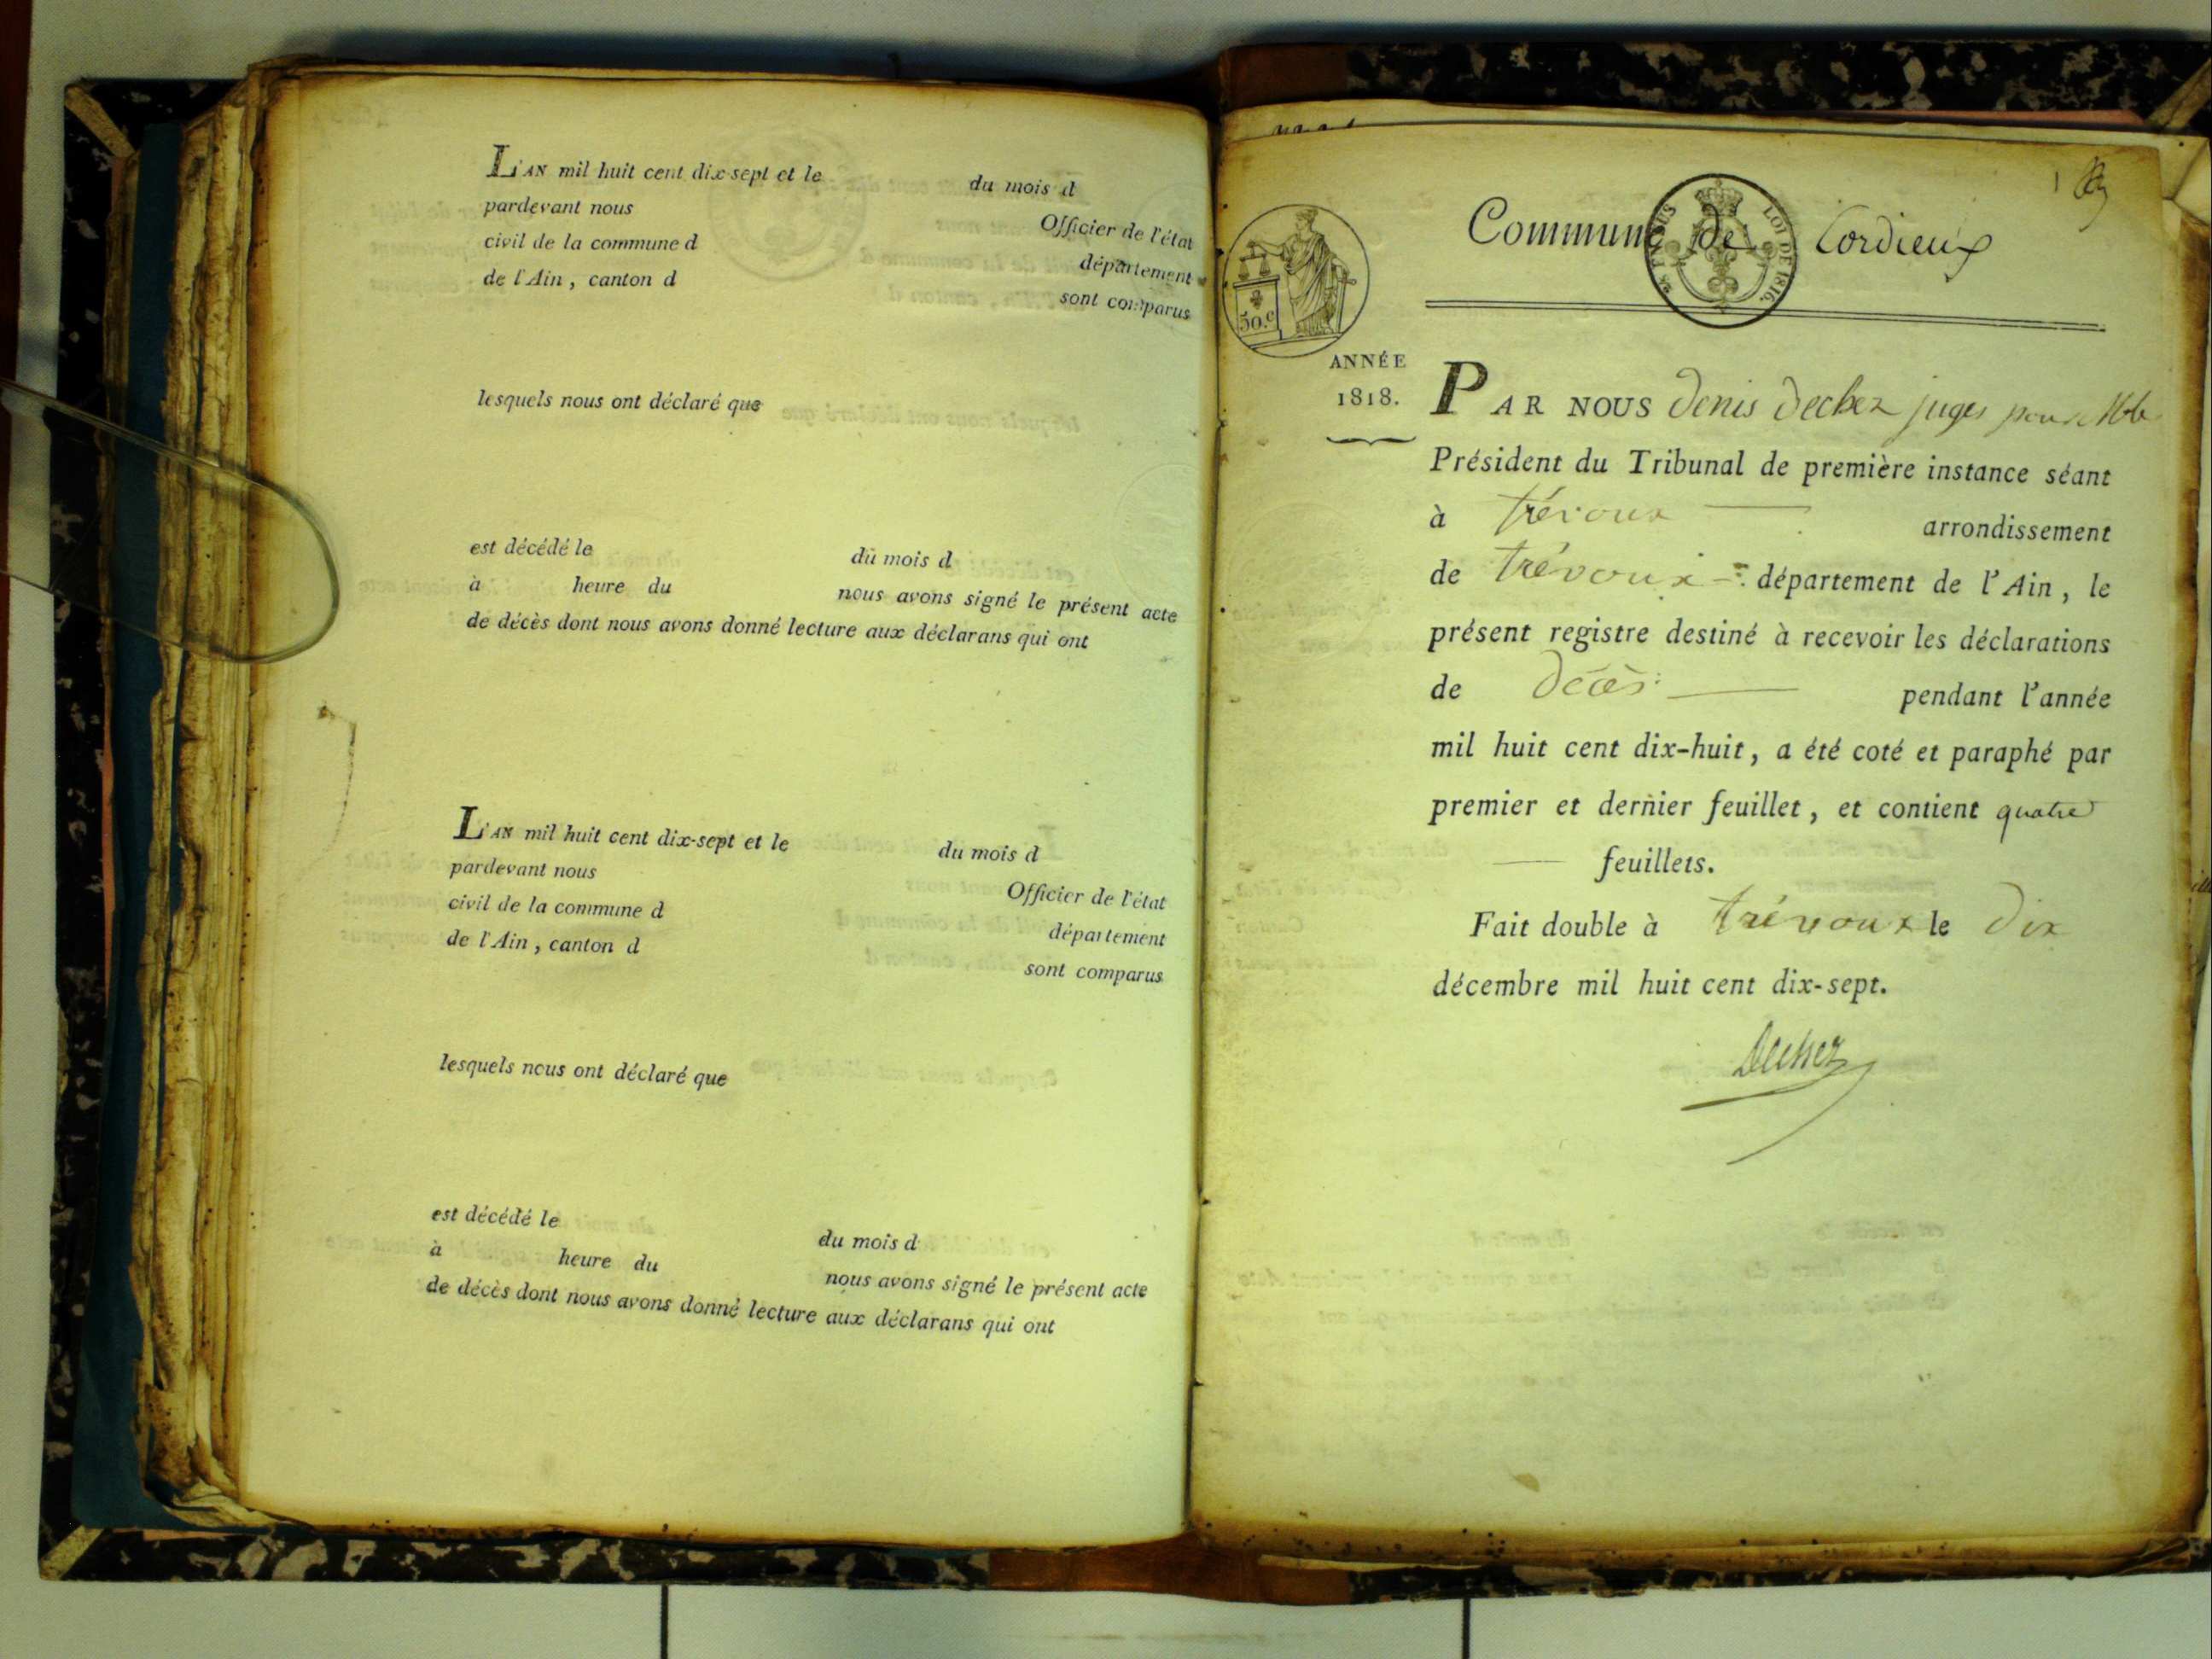 L'AN mil huit cent dix-sept et le du mois d
pardevant nous Officier de l'état
civil de la commune d département
de l'Ain, canton d sont comparus
lesquels nous ont déclaré que
est décédé le du mois d
à heure du nous avons signé le présent acte
de décès dont nous avons donné lecture aux déclarans qui ont
L'AN mil huit cent dix-sept et le du mois d
pardevant nous Officier de l'état
civil de la commune d département
de l'Ain, canton d sont comparus
lesquels nous ont déclaré que
est décédé le du mois d
à heure du nous avons signé le présent acte
de décès dont nous avons donné lecture aux déclarans qui ont
1
Commune de Cordieux
EN SUS LOI DE 1816.
50.c
ANNÉE
1818.
PAR NOUS Denis Dechez juges pour Mr le
Président du Tribunal de première instance séant
à trévoux arrondissement
de trévoux département de l'Ain, le
présent registre destiné à recevoir les déclarations
de Décès pendant l'année
mil huit cent dix-huit, a été coté et paraphé par
premier et dernier feuillet, et contient quatre
feuillets.
Fait double à trévoux le dix
décembre mil huit cent dix-sept.
Dechez